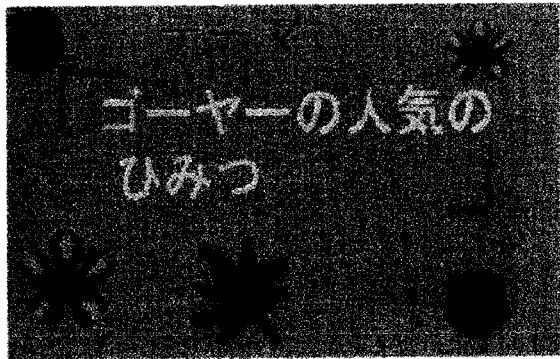 ゴーヤーの人気の
ひみつ